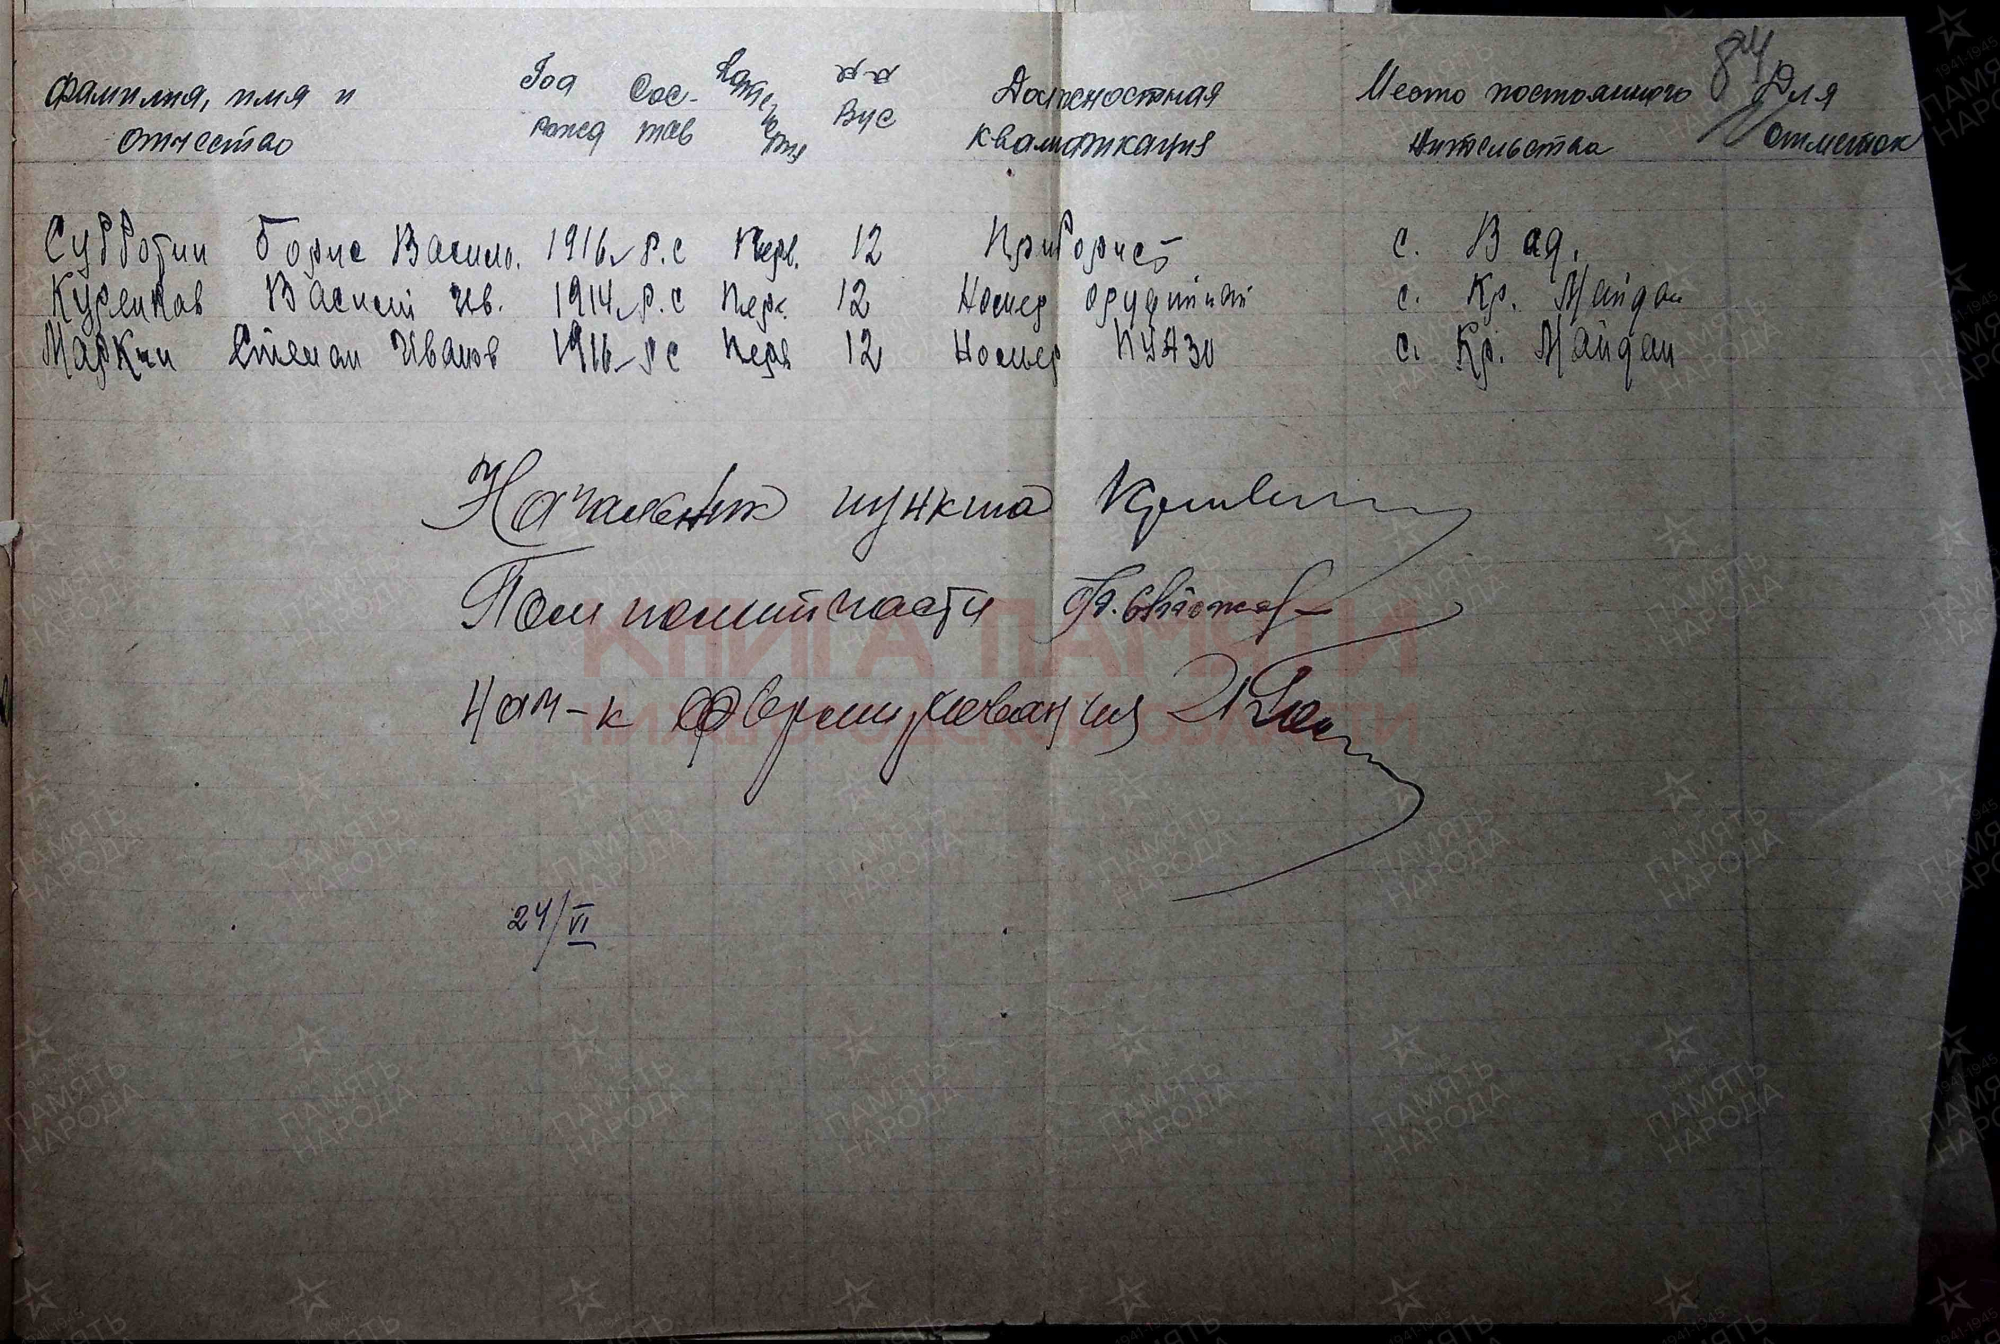 84
Фамилия, имя и отчество Год рожд Сос-тав №-№ ВУС Должностная квалификация Место постоянного жительства Для отметок
Субботин Борис Василь. 1916 Р.С Перв. 12 Приборист с. Вад.
Куренков Василий Ив. 1914 Р.С Перв. 12 Номер орудийный с. Кр. Майдан
Маркин Степан Иванов 1916 РС Перв 12 Номер ПУАЗО с. Кр. Майдан
Начальник пункта
Пом политчасти
Нач-к формирования
24/VI
КНИГА ПАМЯТИ
НИЖЕГОРОДСКОЙ ОБЛАСТИ
ПАМЯТЬ НАРОДА
1941-1945